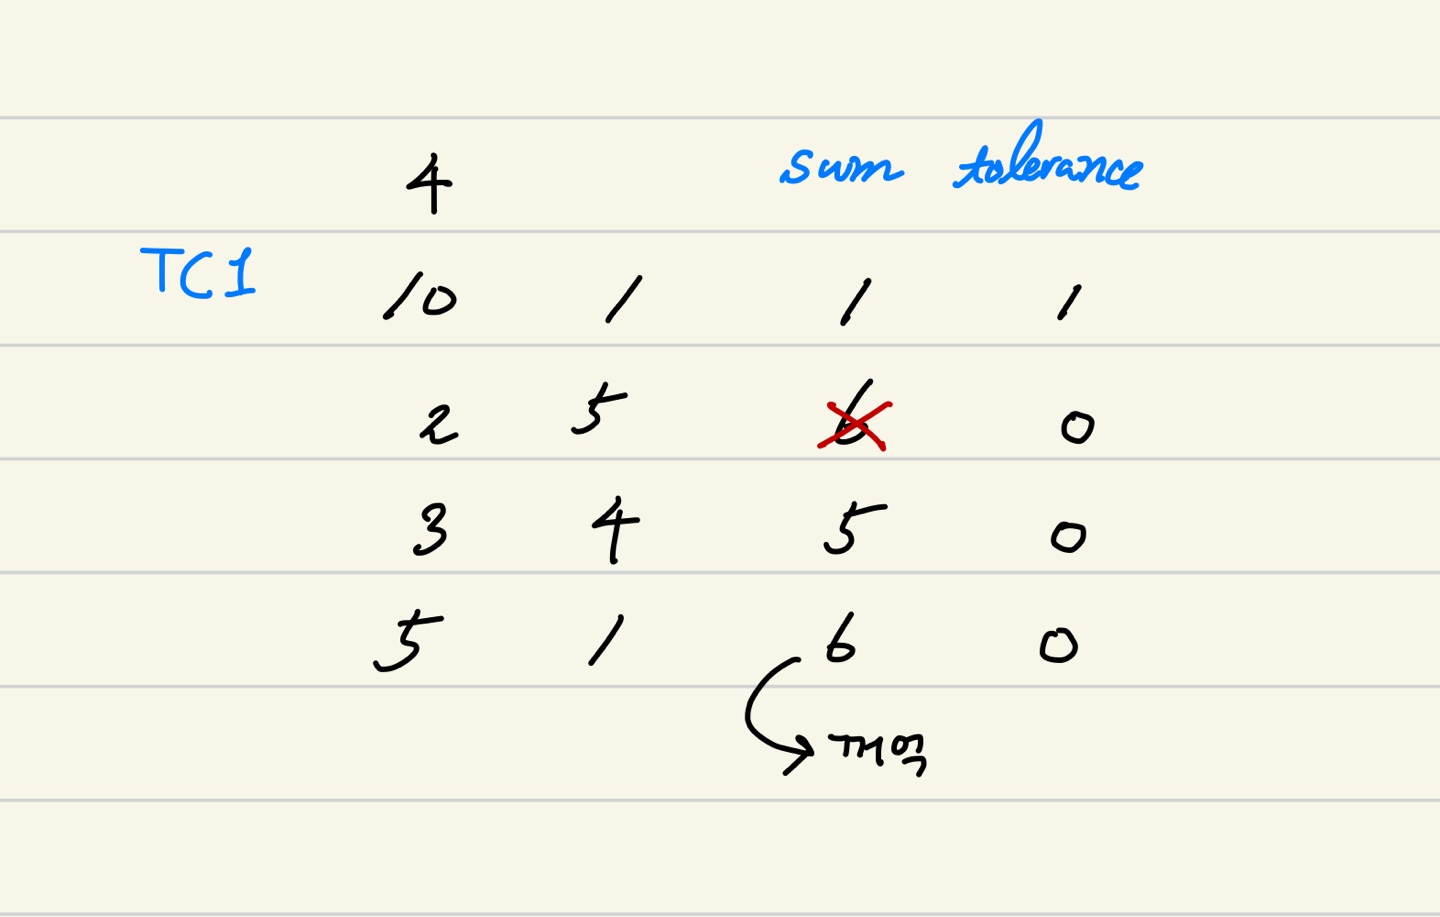 4 sum tolerance
TC1 10 1 1 1
2 5 6 0
3 4 5 0
5 1 6 0